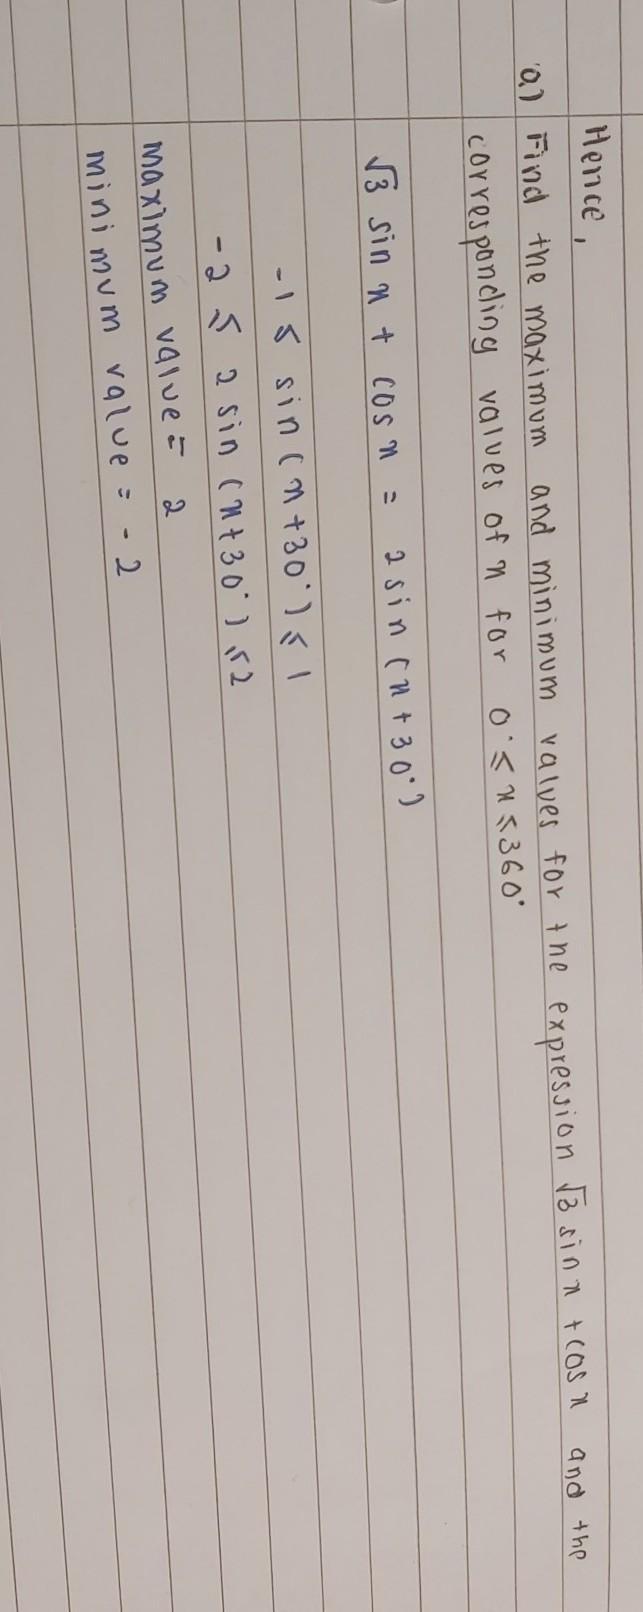 Hence,
a) Find the maximum and minimum values for the expression √3 sin x + cos x and the
corresponding values of x for 0° ≤ x ≤ 360°
√3 sin x + cos x = 2 sin (x + 30°)
-1 ≤ sin (x + 30°) ≤ 1
-2 ≤ 2 sin (x + 30°) ≤ 2
maximum value = 2
minimum value = -2